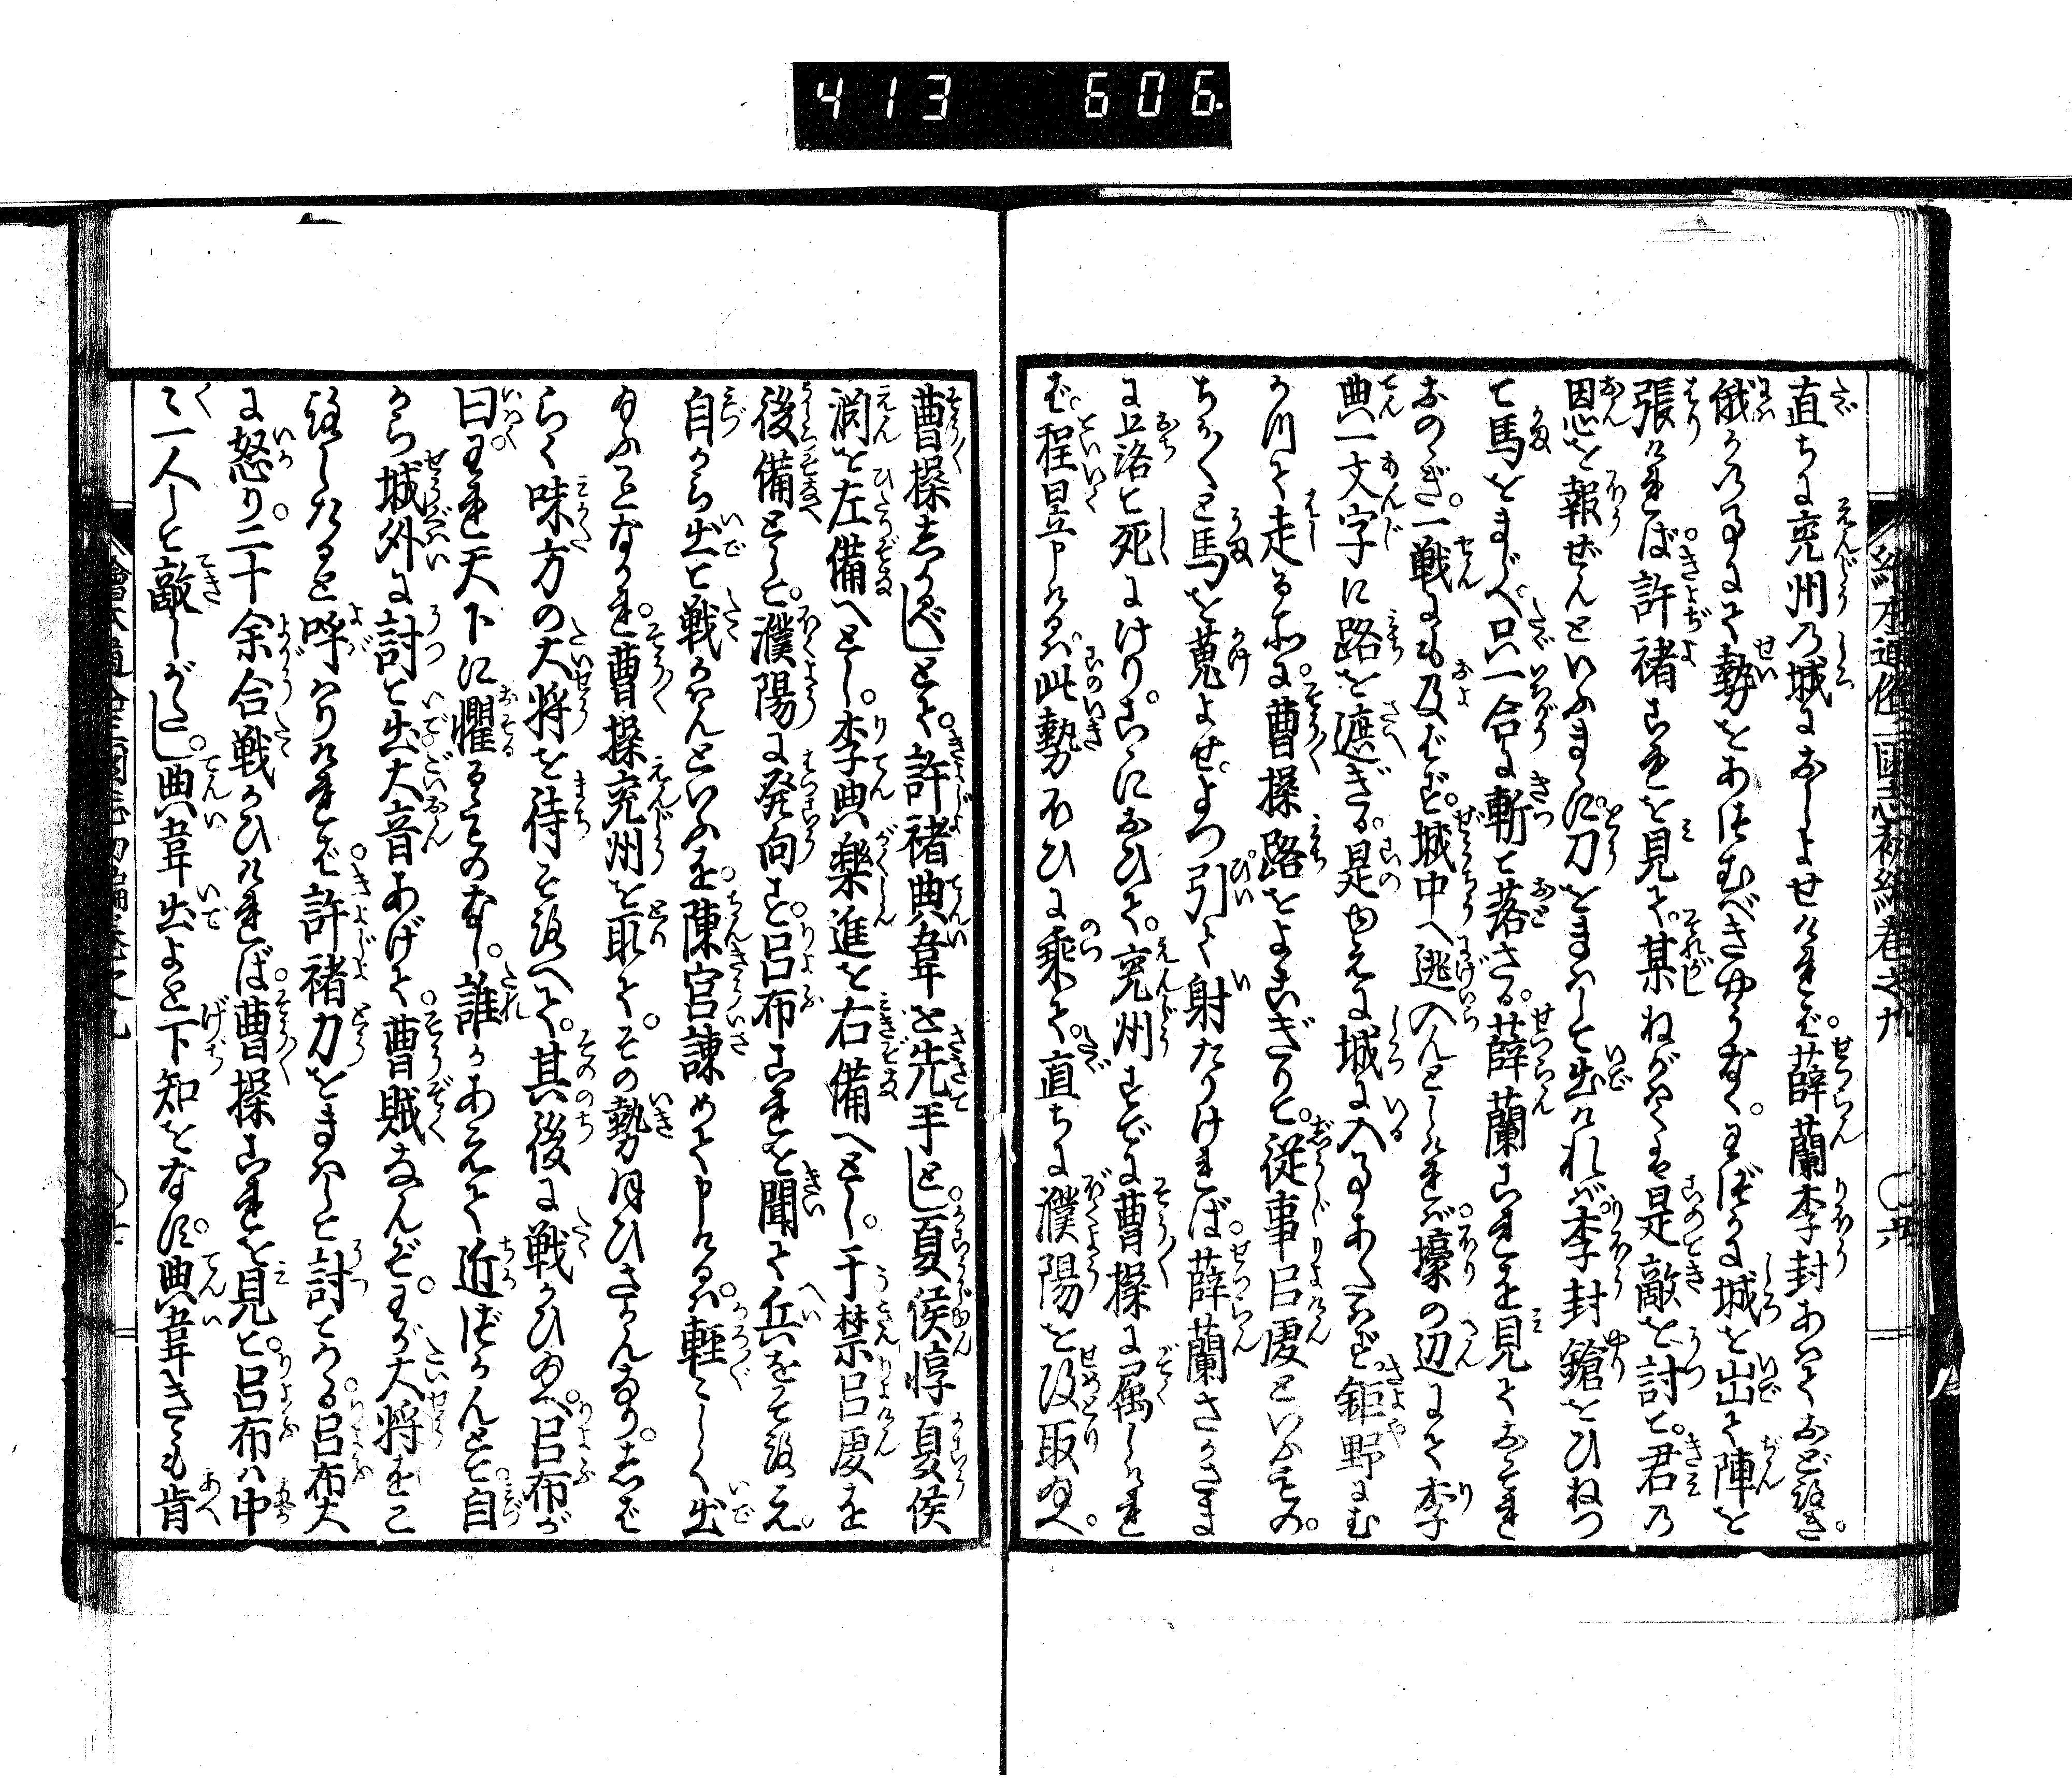 413 606.
絵本通俗三国志初編巻之九 〇六
直ちに兗州の城におしよせければ。薛蘭李封あはておどろき。
俄かの事にて勢をあつむべきやうなく。わづかに城を出て陣を
張ければ。許褚これを見て。某ねがはくは是敵を討て。君の
恩を報ぜんといふまゝに。刀をまはして出ければ。李封鎗をひねつ
て馬をまじへ。只一合に斬て落さる。薛蘭これを見ておそれ
おのゝぎ。一戦にも及ばず。城中へ逃入んとしければ。壕の辺にて李
典一文字に路を遮ぎる。是ゆえに城に入る事あたはず。鉅野にむ
かつて走る所に。曹操路をよこぎりて。従事呂虔といふもの。
ちかく馬を蒐よせ。よつ引て射たりければ。薛蘭さかさま
に落て死にけり。こゝにおひて。兗州すでに曹操に属しけれ
ば。程昱申けるは。此勢ひに乗て。直ちに濮陽を攻取給へ。
曹操しかるべしとて。許褚典韋を先手とし。夏侯惇夏侯
淵を左備へとし。李典楽進を右備へとし。于禁呂虔を
後備として。濮陽に発向す。呂布これを聞て兵をそろへ。
自から出て戦かはんといふを。陳宮諫めて申けるは。軽〻しく出
給ふことなかれ。曹操兗州を取て。その勢ひさかんなり。しば
らく味方の大将を待そろへて。其後に戦かひ給へ。呂布が
曰われ天下に懼るゝものなし。誰かあえて近づかんとて。自
から城外に討て出。大音あげて。曹賊なんぞ。わが大将をこ
ろしたると呼はりければ。許褚刀をまはして討てかゝる。呂布大
に怒り。二十余合戦かひければ。曹操これを見て。呂布は中
〻一人して敵しがたし。典韋出よと下知をなす。典韋きくも肯
絵本通俗三国志初編巻之九